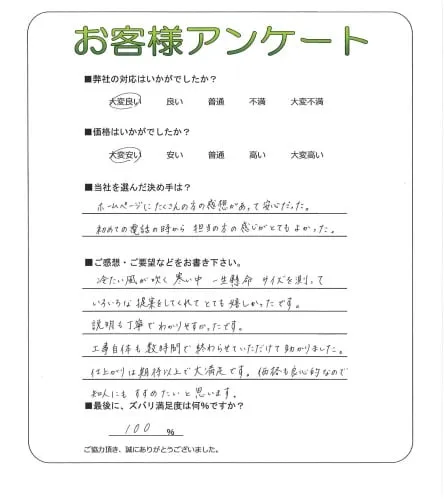 お客様アンケート
■弊社の対応はいかがでしたか?
大変良い 良い 普通 不満 大変不満
■価格はいかがでしたか?
大変安い 安い 普通 高い 大変高い
■当社を選んだ決め手は?
ホームページにたくさんの方の感想があって安心だった。
初めての電話の時から 担当の方の感じがとてもよかった。
■ご感想・ご要望などをお書き下さい。
冷たい風が吹く寒い中 一生懸命 サイズを測って
いろいろな提案をしてくれてとても嬉しかったです。
説明も丁寧でわかりやすかったです。
工事自体も数時間で終わらせていただけて助かりました。
仕上がりは期待以上で大満足です。価格も良心的なので
知人にもすすめたいと思います。
■最後に、ズバリ満足度は何%ですか?
100 %
ご協力頂き、誠にありがとうございました。